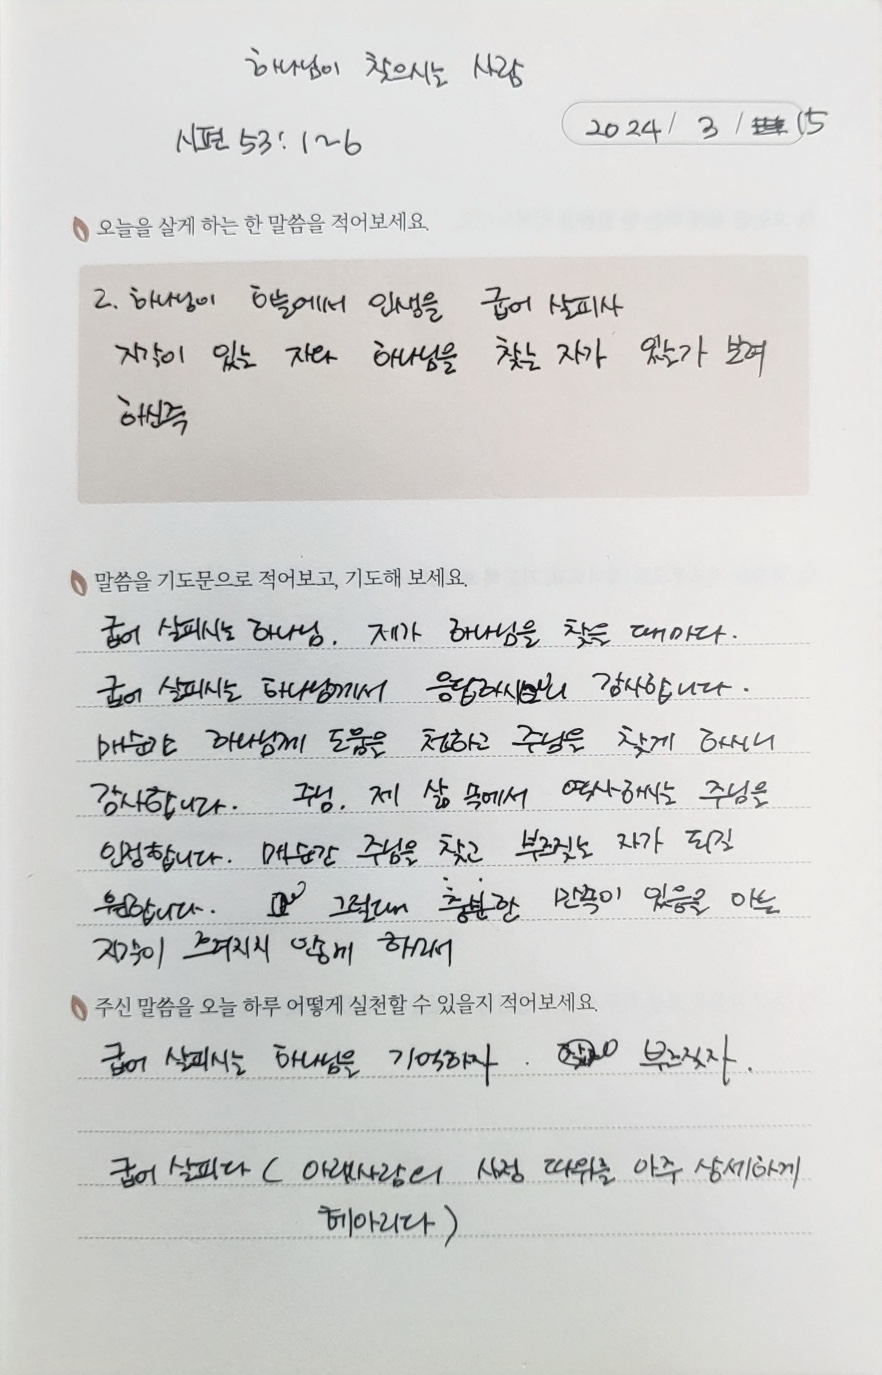 하나님이 찾으시는 사람
시편 53:1~6
2024/ 3 / 15
오늘을 살게 하는 한 말씀을 적어보세요.
2. 하나님이 하늘에서 인생을 굽어 살피사
지각이 있는 자와 하나님을 찾는 자가 있는가 보려
하신즉
말씀을 기도문으로 적어보고, 기도해 보세요.
굽어 살피시는 하나님. 제가 하나님을 찾을 때마다.
굽어 살피시는 하나님께서 응답하시니 감사합니다.
매순간 하나님께 도움을 청하고 주님을 찾게 하시니
감사합니다. 주님. 제 삶 속에서 역사하시는 주님을
인정합니다. 매순간 주님을 찾고 부르짖는 자가 되길
원합니다. 그럴때 충분한 만족이 있음을 아는
지각이 흐려지지 않게 하소서
주신 말씀을 오늘 하루 어떻게 실천할 수 있을지 적어보세요.
굽어 살피시는 하나님을 기억하자. 부르짖자.
굽어 살피다 ( 아랫사람의 사정 따위를 아주 상세하게
헤아리다 )